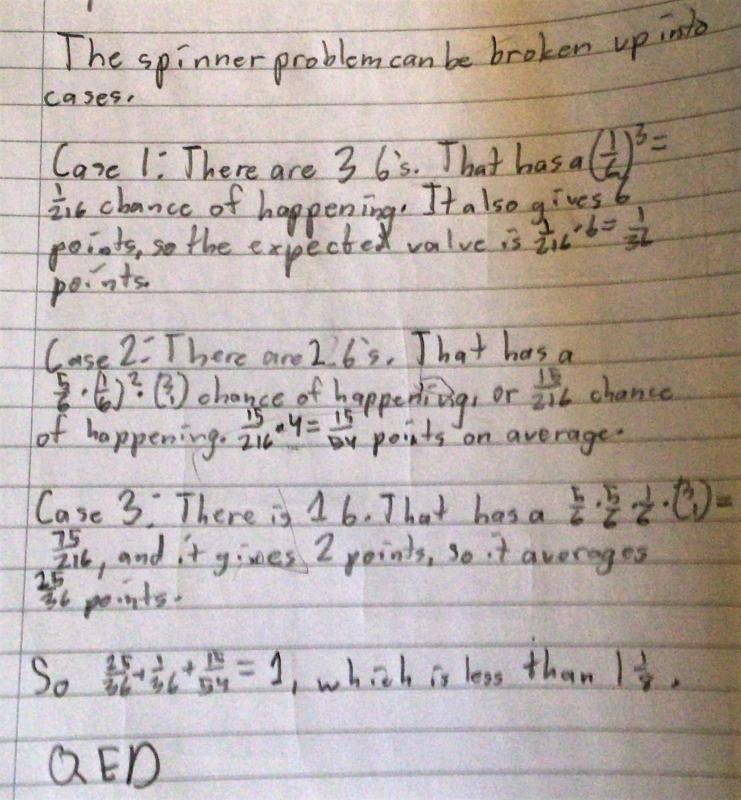 The spinner problem can be broken up into
cases.
Case 1: There are 3 6's. That has a (1/6)^3 =
1/216 chance of happening. It also gives 6
points, so the expected value is 1/216 · 6 = 1/36
points.
Case 2: There are 2 6's. That has a
5/6 · (1/6)^2 · (3 1) chance of happening, or 15/216 chance
of happening. 15/216 · 4 = 15/54 points on average.
Case 3: There is 1 6. That has a 5/6 · 5/6 · 1/6 · (3 1) =
75/216, and it gives 2 points, so it averages
25/36 points.
So 25/36 + 1/36 + 15/54 = 1, which is less than 1 1/8.
QED